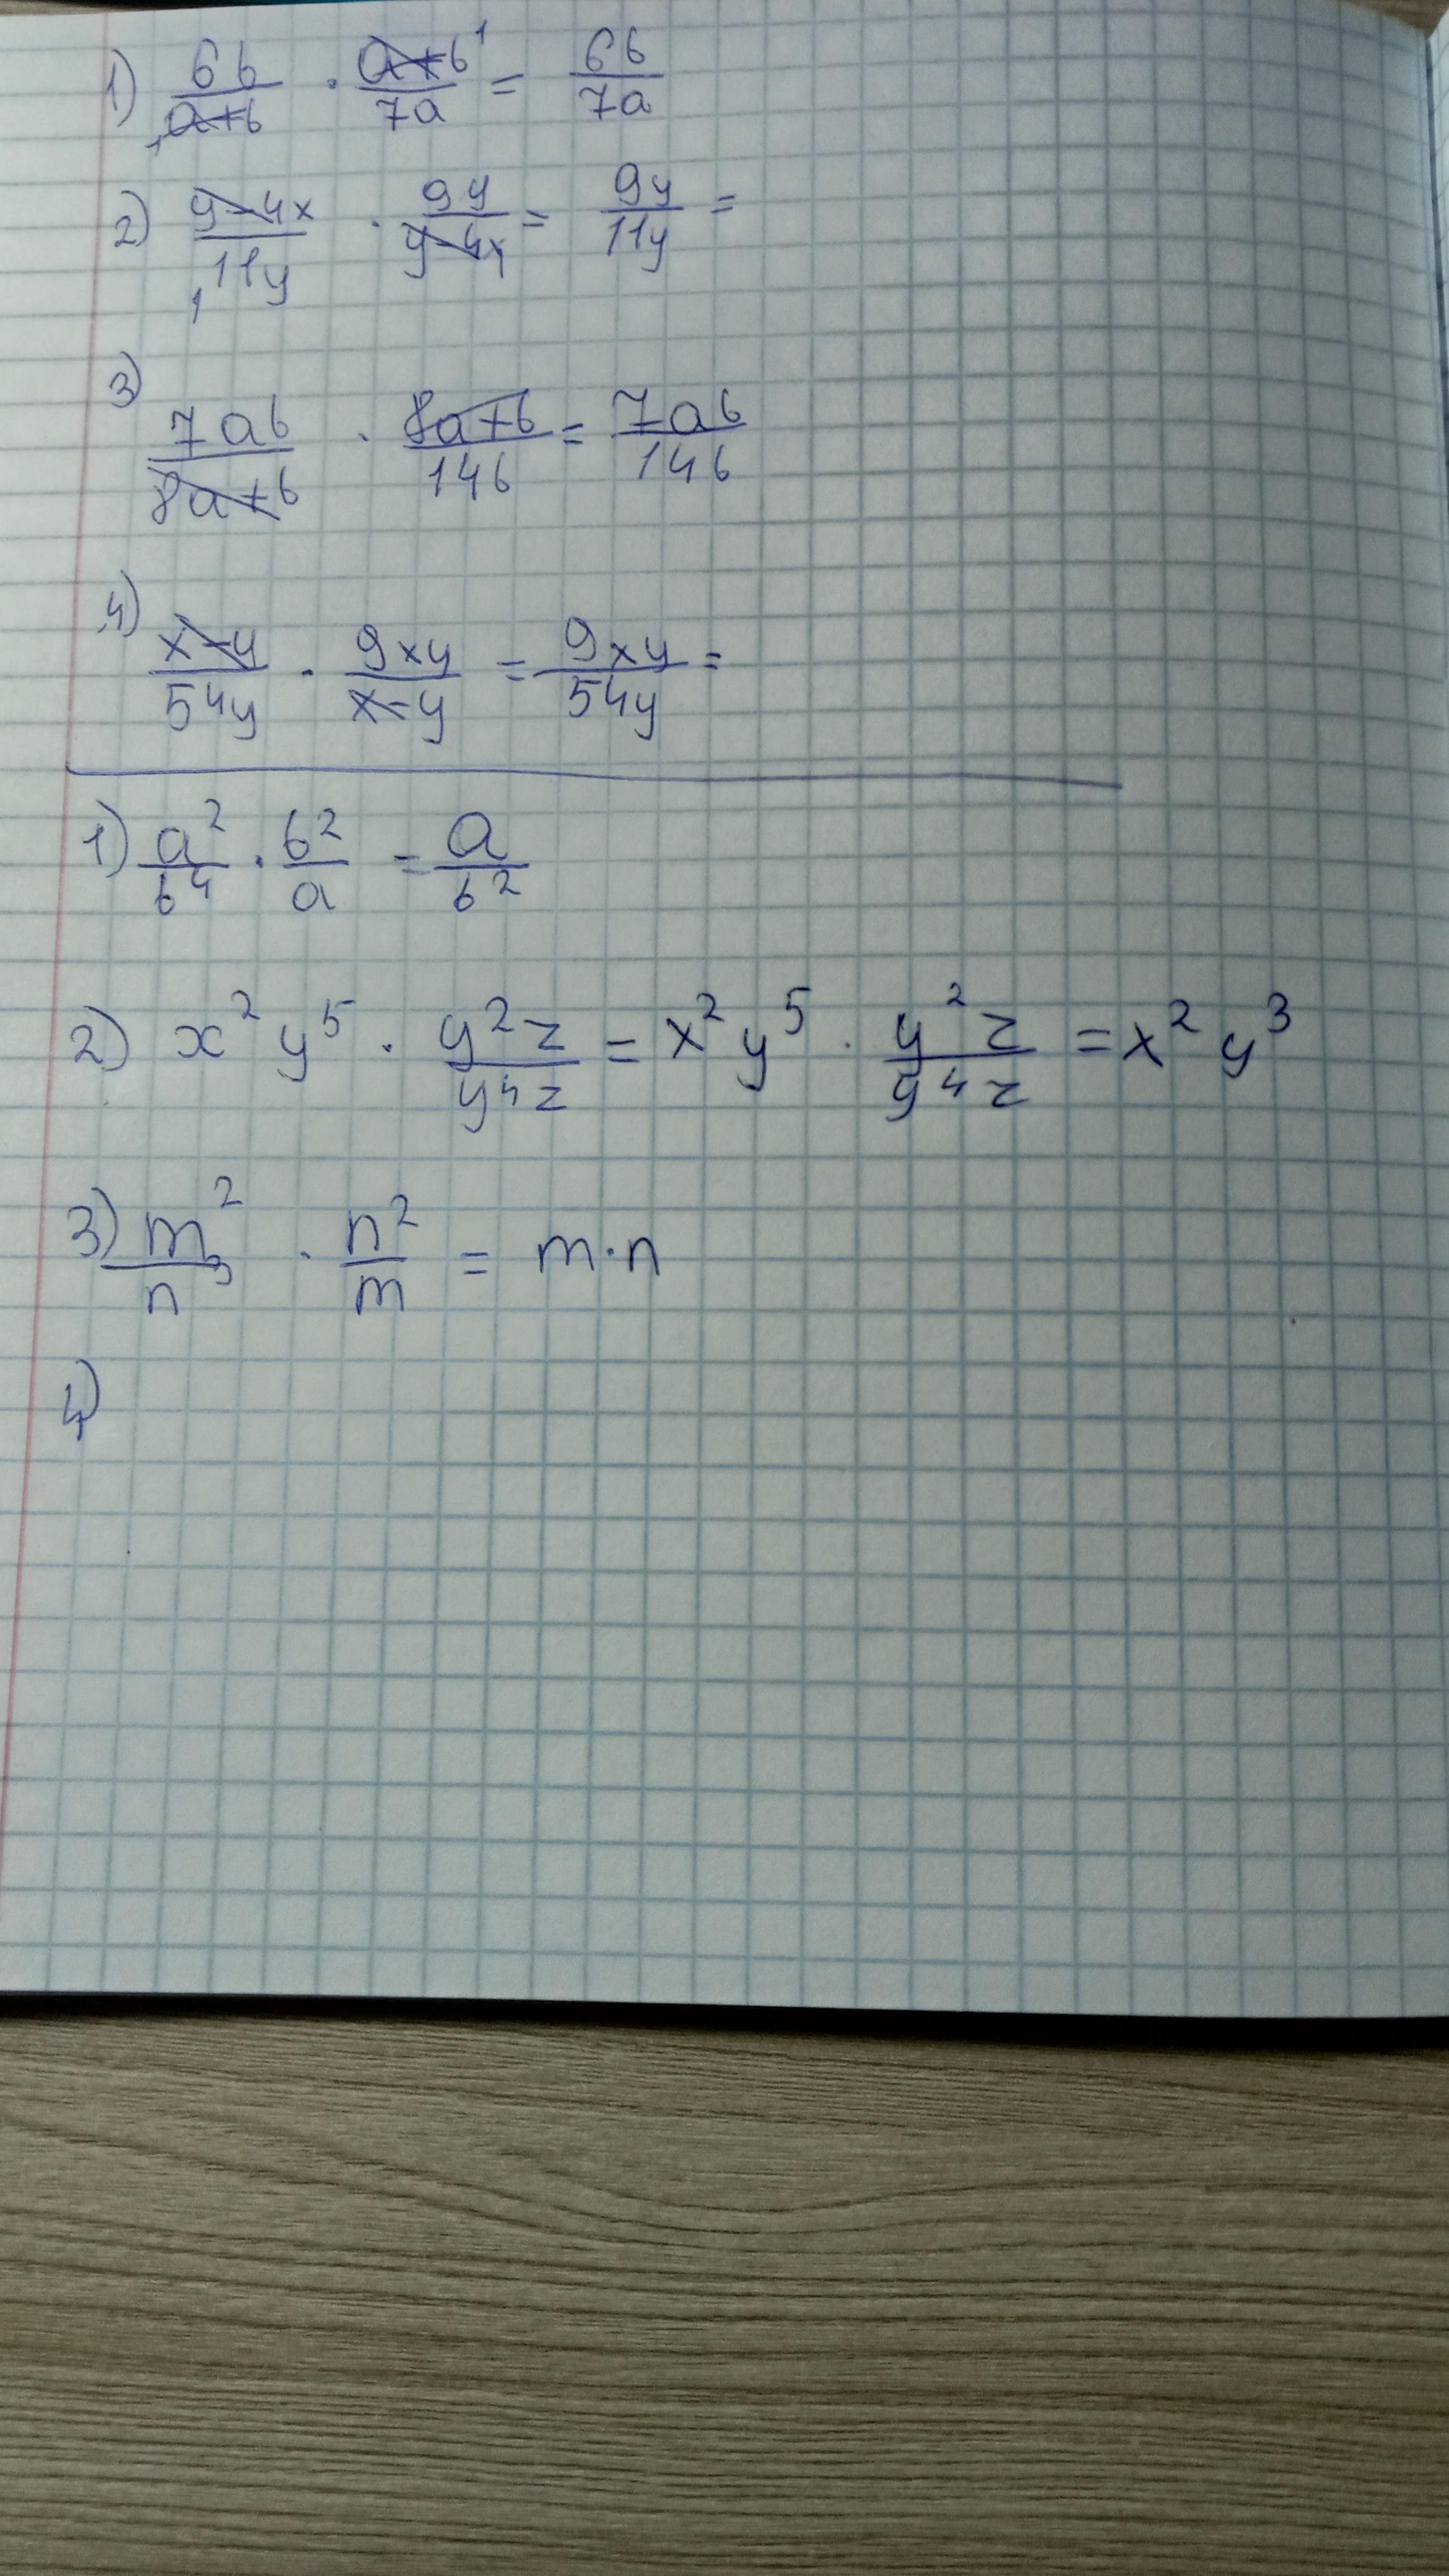 1) 6b/(a+b) · (a+b)¹/7a = 6b/7a
2) (y-4x)/11y · 9y/(y-4x) = 9y/11y =
3) 7ab/(8a+b) · (8a+b)/14b = 7ab/14b
4) (x-y)/54y · 9xy/(x-y) = 9xy/54y =
1) a²/b⁴ · b²/a = a/b²
2) x²y⁵ · y²z/y⁴z = x²y⁵ · y²z/y⁴z = x²y³
3) m²/n³ · n²/m = m·n
4)